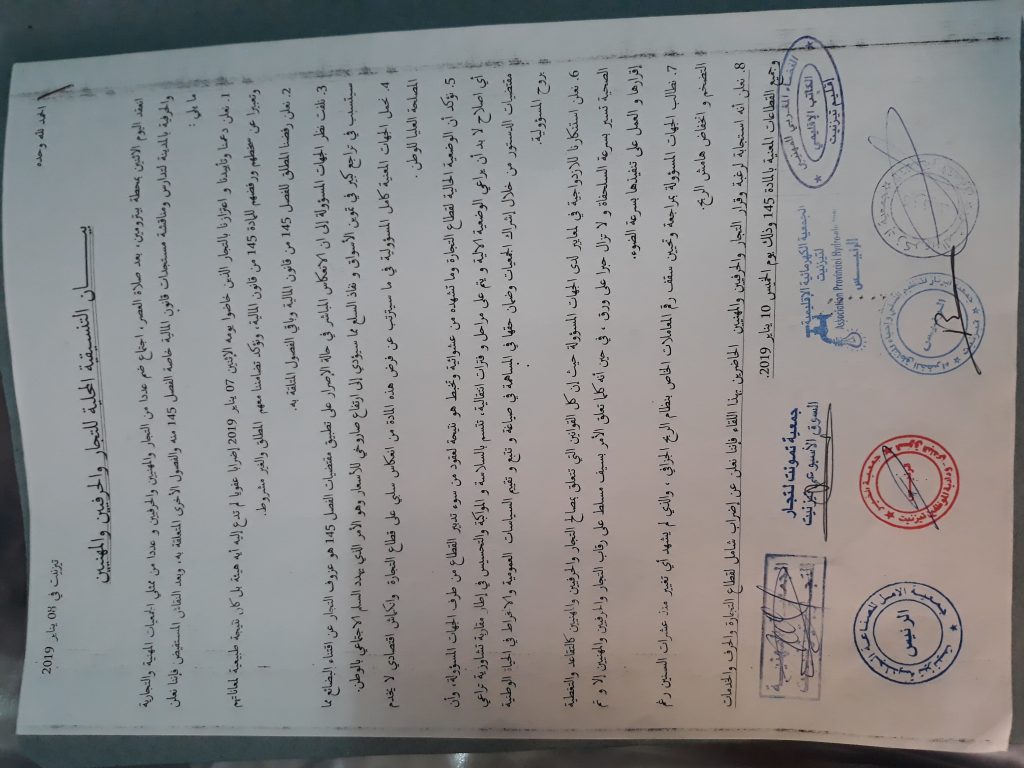 الحمد لله وحده
تيزنيت في 08 يناير 2019
بـــــــان التنسيقية المحلية للتجار والحرفيين والمهنيين
انعقد اليوم الاثنين بمحطة بيترومين، بعد صلاة العصر، اجتماع ضم عددا من التجار والمهنيين والحرفيين و عددا من ممثلي الجمعيات المهنية والتجارية
والحرفية بالمدينة لتدارس ومناقشة مستجدات قانون المالية خاصة الفصل 145 منه والفصول الأخرى المتعلقة به، وبعد النقاش المستفيض فإننا نعلن
ما يلي :
1. نعلن دعمنا وتأييدنا و اعتزازنا بالتجار الذين خاضوا يومه الاثنين 07 يناير 2019 إضرابا عفويا لم تدع إليه أية هيئة بل كان نتيجة طبيعية لمعاناتهم
وتعبيرا عن سخطهم ورفضهم للمادة 145 من قانون المالية ، ونؤكد تضامننا معهم المطلق والغير مشروط.
2. نعلن رفضنا المطلق للفصل 145 من قانون المالية وباقي الفصول المتعلقة به.
3. نلفت نظر الجهات المسؤولة إلى أن الانعكاس المباشر في حالة الإصرار على تطبيق مقتضيات الفصل 145 هو عزوف التجار عن اقتناء البضائع مما
سيتسبب في تراجع كبير في تموين الأسواق و نفاذ السلع مما سيؤدي إلى ارتفاع صاروخي للأسعار وهو الأمر الذي يهدد السلم الاجتماعي بالوطن.
4. نحمل الجهات المعنية كامل المسؤولية في ما سيترتب عن فرض هذه المادة من انعكاس سلبي على قطاع التجارة وانكماش اقتصادي لا يخدم
المصلحة العليا للوطن.
5. نؤكد أن الوضعية الحالية لقطاع التجارة وما تشهده من عشوائية وتخبط هو نتيجة لعقود من سوء تدبير القطاع من طرف الجهات المسؤولة، وأن
أي اصلاح لا بد أن يراعي الوضعية الالية و يتم على مراحل و فترات انتقالية، تتسم بالسلاسة و المواكبة والتحسيس في إطار مقاربة تشاورية تراعي
مقتضيات الدستور من خلال إشراك الجمعيات وضمان حقها في المساهمة في صياغة و تتبع و تقييم السياسات العمومية والانخراط في الحياة الوطنية
بروح المسؤولية.
6. نعلن استنكارنا للازدواجية في المعايير لدى الجهات المسؤولة حيث إن كل القوانين التي تتعلق بمصالح التجار والحرفيين والمهنيين كالتقاعد والتغطية
الصحية تسير بسرعة السلحفاة ولا تزال حبرا على ورق ، في حين أنه كلما تعلق الأمر بسيف مسلط على رقاب التجار والحرفيين والمهنيين إلا و تم
إقرارها و العمل على تنفيذها بسرعة الضوء.
7. نطالب الجهات المسؤولة بمراجعة وتحيين سقف رقم المعاملات الخاص بنظام الربح الجزافي ، والذي لم يشهد أي تغيير منذ عشرات السنين رغم
التضخم و انخفاض هامش الربح.
8. نعلن أنه استجابة لرغبة وقرار التجار والحرفيين والمهنيين الحاضرين بهذا اللقاء فإننا نعلن عن إضراب شامل لقطاع التجارة والحرف والخدمات
وجميع القطاعات المعنية بالمادة 145 وذلك يوم الخميس 10 يناير 2019.
الكاتب الإقليمي
إقليم تيزنيت
الجمعية الكهرمائية الإقليمية
لتيزنيت
Association Provincial Hydro
الرئيـــس
جمعية تمونت لتجار
السوق الأسبوعي تيزنيت
الرئيس